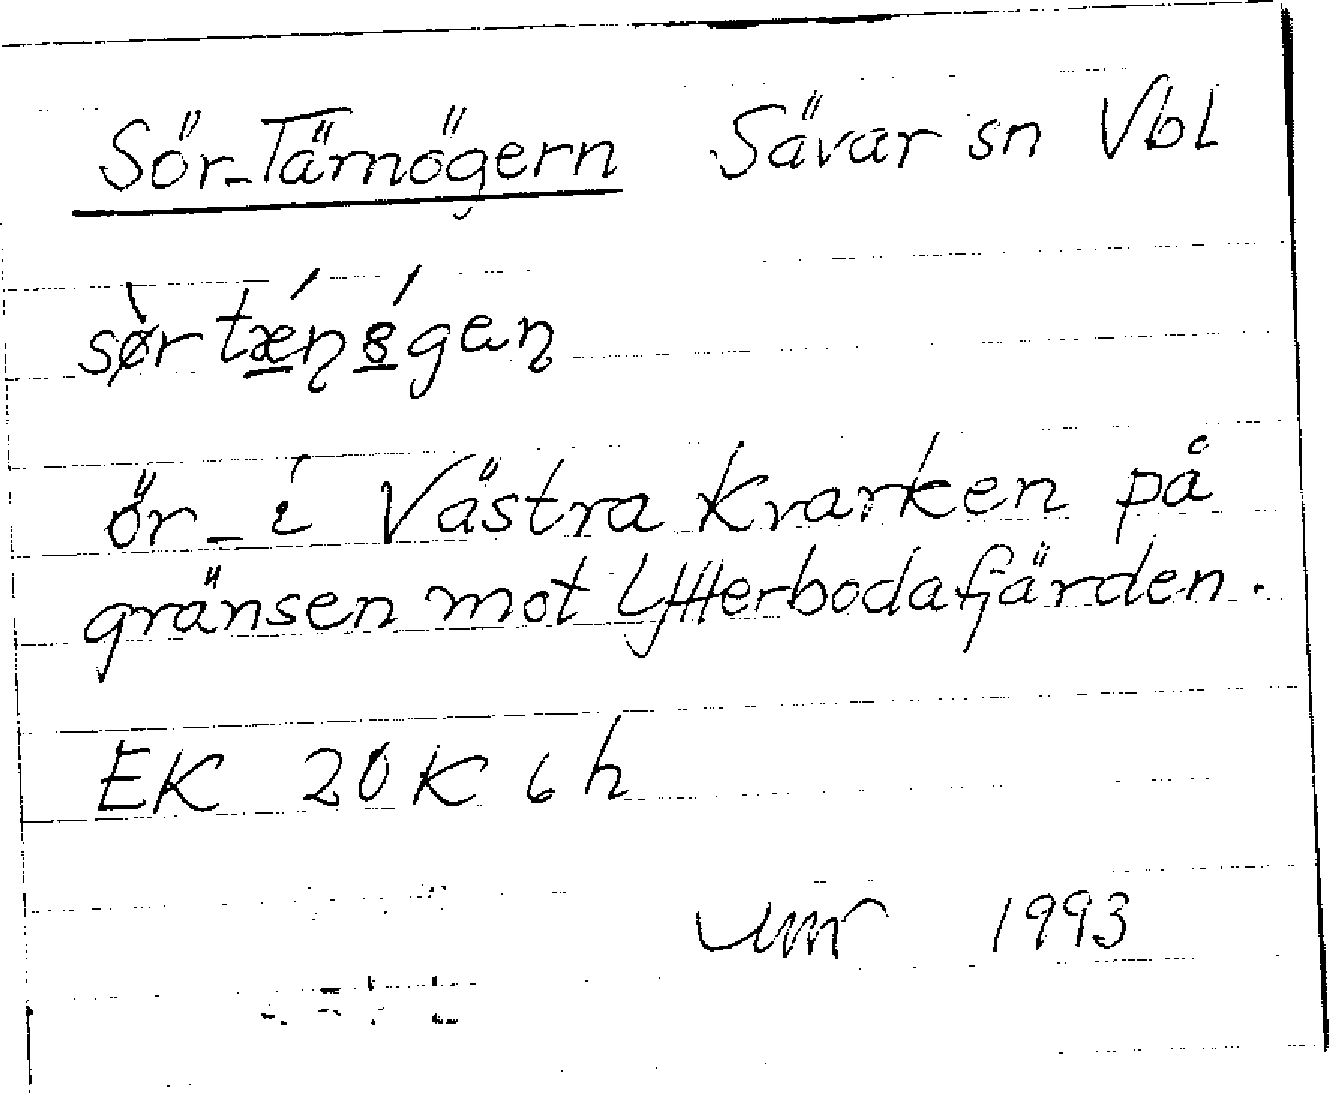 Sör-Tärnögern Sävar sn Vbl
ör i Västra Kvarken på
gränsen mot Ytterbodafjärden.
EK 20K 6h
1993